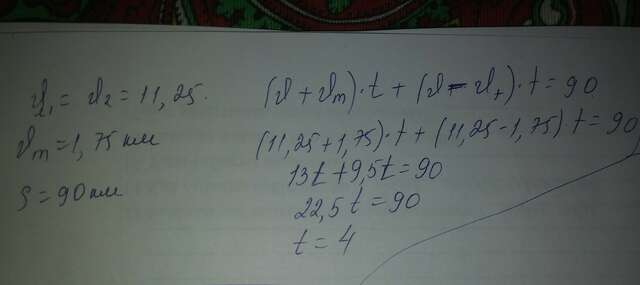 υ₁ = υ₂ = 11,25.
υm = 1,75 км
S = 90 км
(υ + υm)·t + (υ - υt)·t = 90
(11,25+1,75)·t + (11,25-1,75) t = 90
13t + 9,5t = 90
22,5 t = 90
t = 4